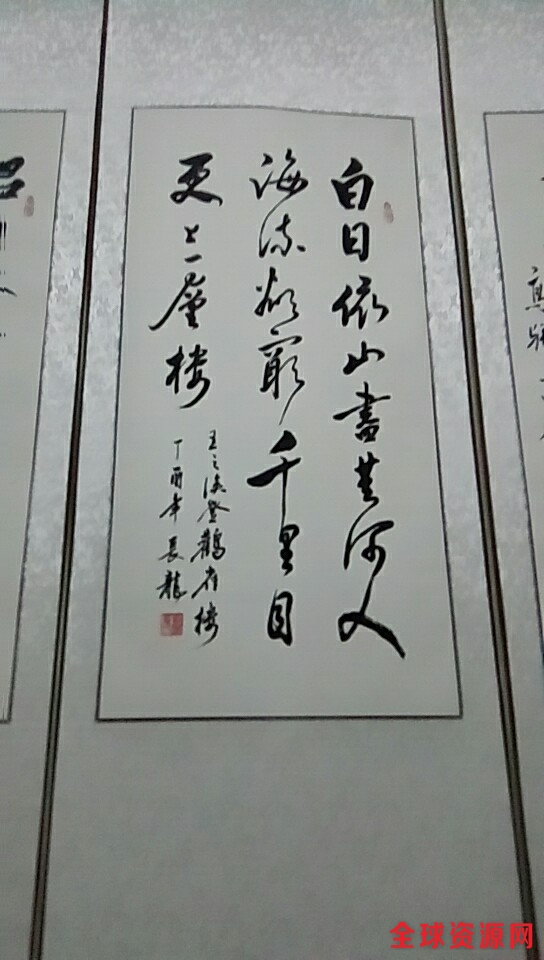 白日依山盡黄河入
海流欲窮千里目
更上一層樓
王之渙登鸛雀樓
丁酉年長龍
全球资源网